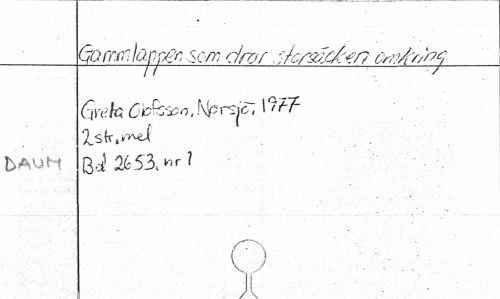 Gammlappen som drar storsäcken omkring
Greta Olofsson, Norsjö, 1977
2 str, mel
DAUM Bd 2653, nr 1